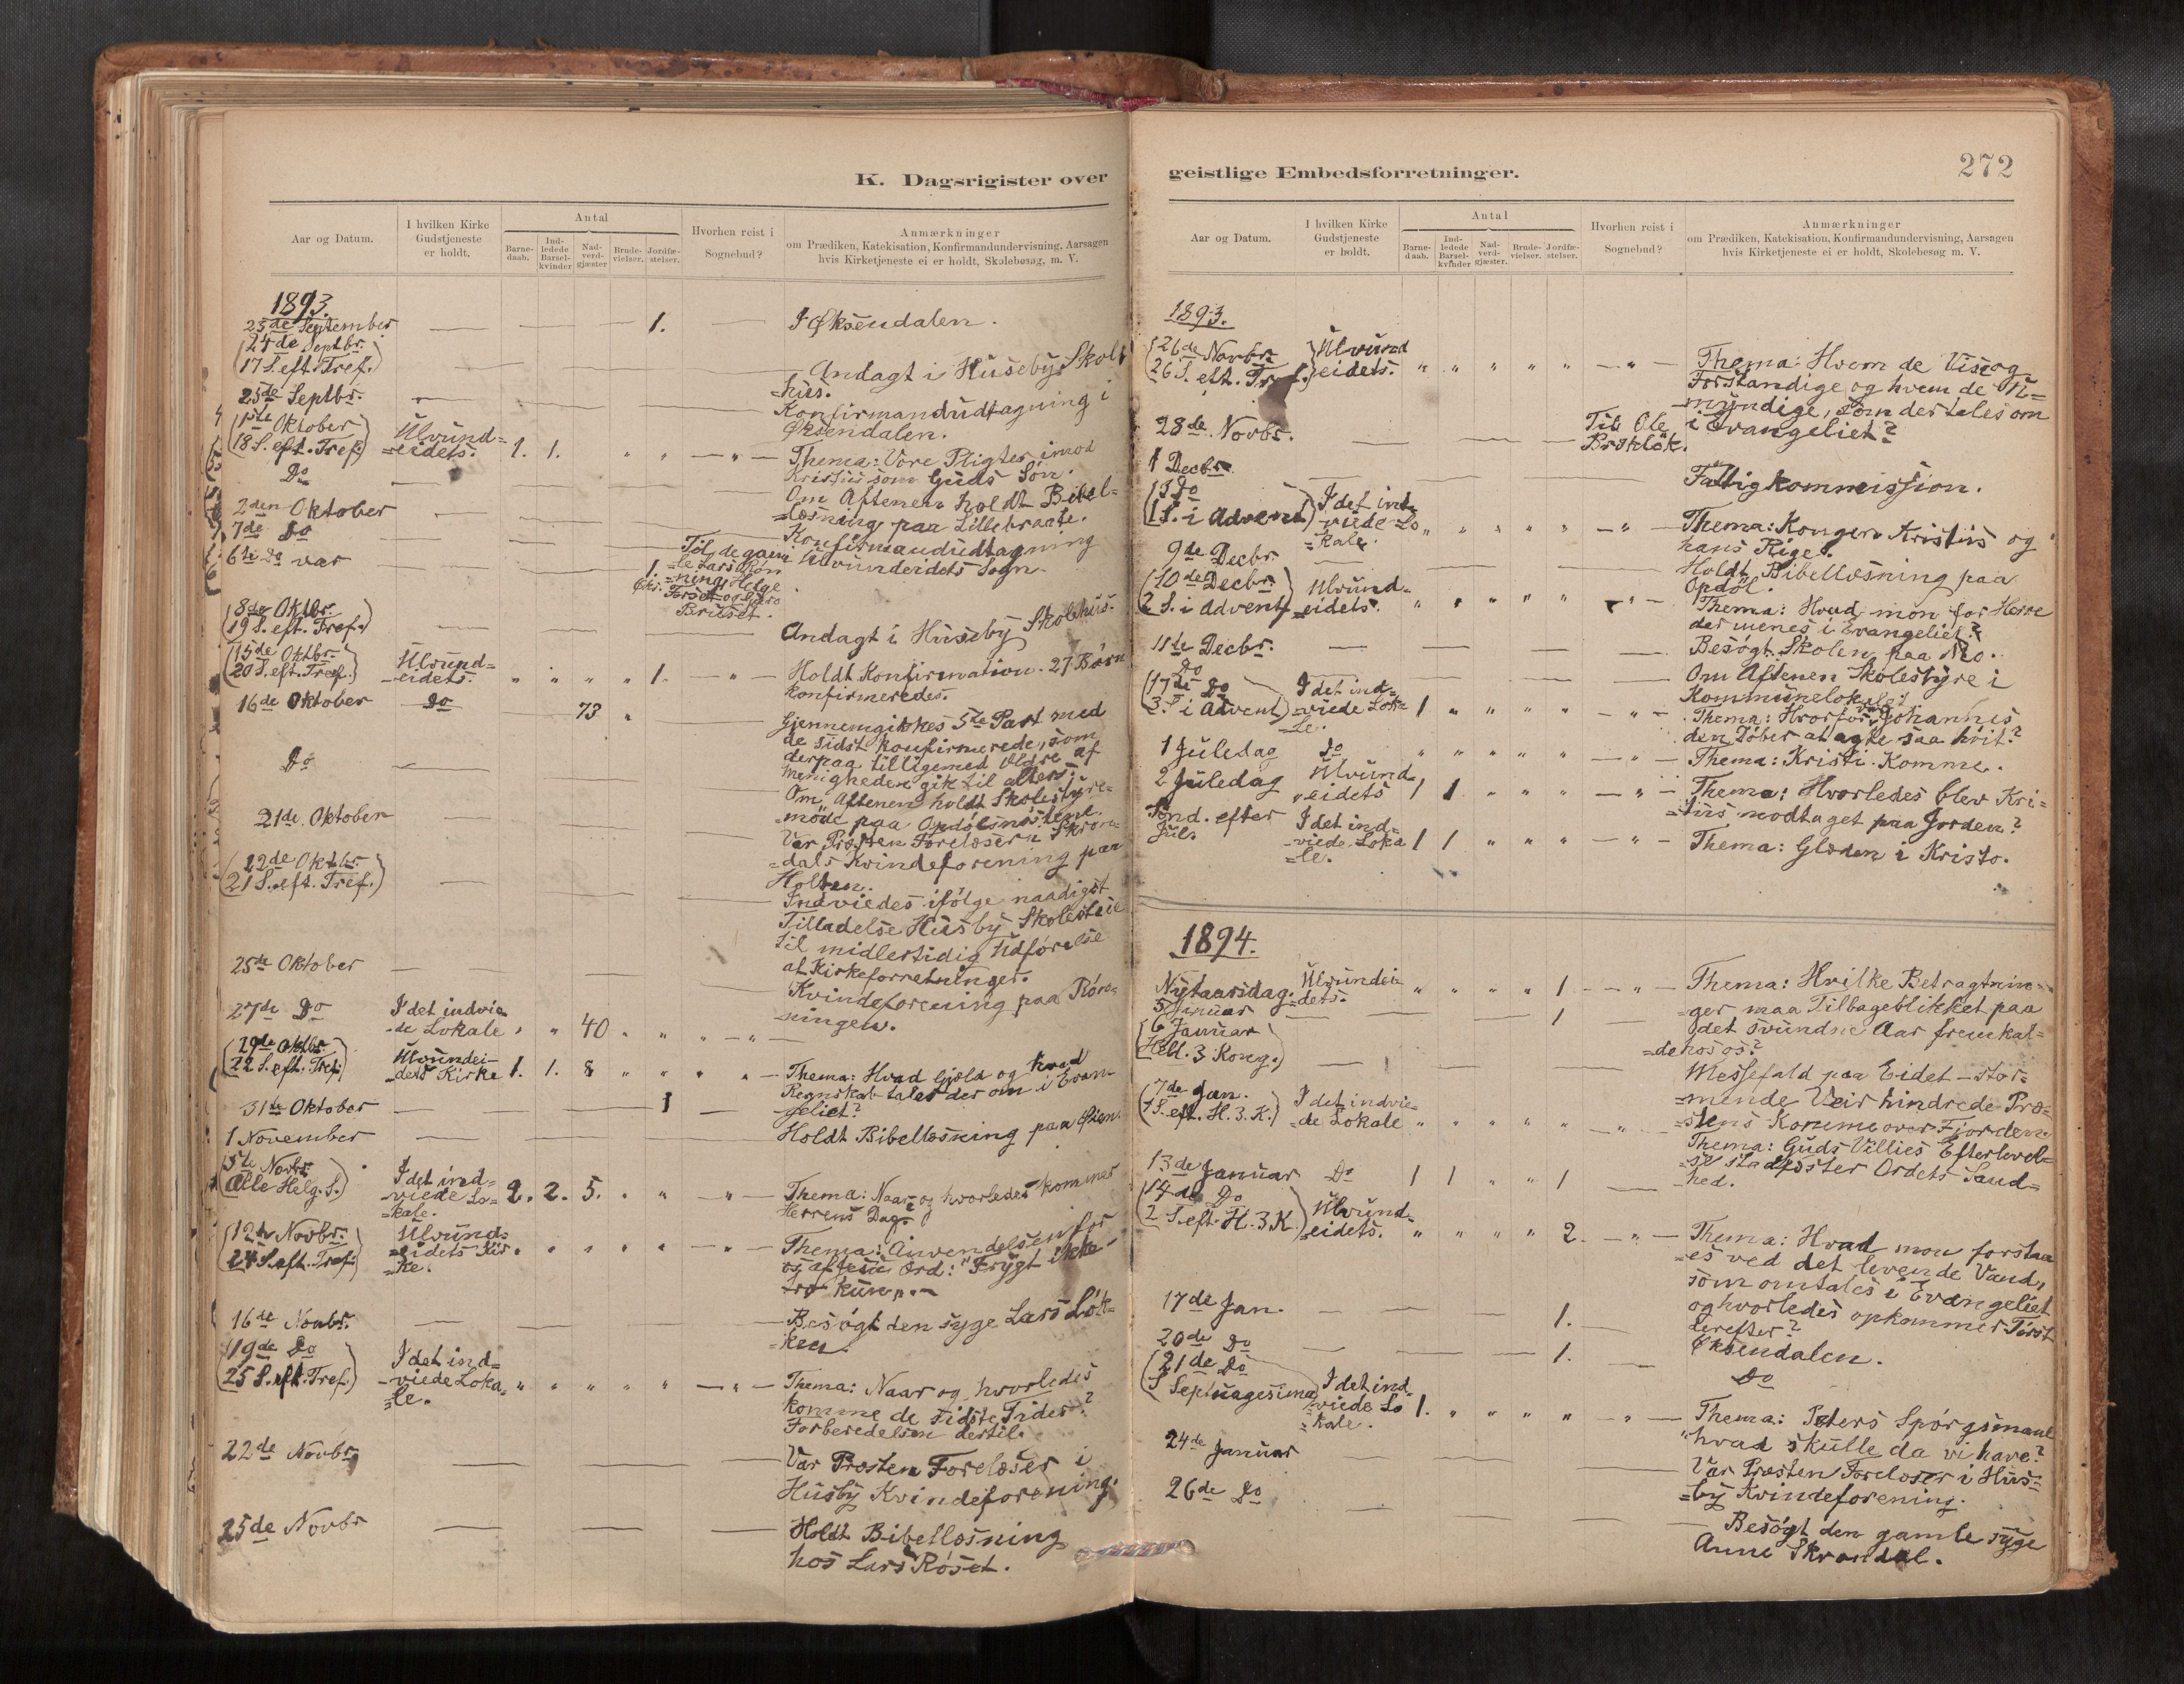 K. Dagsrigister over
Aar og Datum.
I hvilken Kirke
Gudstjeneste
er holdt.
Antal
Barne-
daab.
Ind-
ledede
Barsel-
kvinder
Nad-
verd-
gjæster
Brude-
vielser.
Jordfæ-
stelser.
Hvorhen reist i
Sognebud?
Anmærkninger
om Prædiken, Katekisation, Konfirmandundervisning, Aarsagen
hvis Kirketjeneste ei er holdt, Skolebesøg, m. V.
1893.
23de September 1. I Øksendalen.
(24de Septbr.
17 S. eft. Tref.) Andagt i Huseby Skol
=hus.
25de Septbr. Konfirmandudtagning i
Øksendalen.
(1ste Oktober
18 S. eft. Tref.) Ulvund=
=eidets. 1. 1. " " — " — Thema: Vore Pligter imod
Kristus som Guds Søn.
Do Om Aftenen holdt Bibel=
=læsning paa Lillebraate.
2den Oktober
7de Do Konfirmandudtagning
i Ulvundeidets Sogn.
6te Do var 1. Til de gam
=le Lars Røm
=ning, Helge
Brüset.
(8de Oktbr.
19 S. eft. Tref.) Andagt i Huseby Skolehus.
(15de Oktbr.
20 S. eft. Tref.) Ulvund=
=eidets. " " " " 1. — " — Holdt Konfirmation. 27 Børn
konfirmeredes.
16de Oktober Do 73 " Gjennemgikkes 5te Part med
de sidst konfirmerede, som
derpaa tilligemed Ældre af
Menigheden gik til alters.
Do Om Aftenen holdt Skolestyre=
=møde paa Opdølsmostene.
21de Oktober Var Præsten Forelæser i Skrøm=
=dals Kvindeforening paa
Holten.
(22de Oktbr.
21 S. eft. Tref.) Indviedes ifølge naadigst
Tilladelse Husby Skolestue
til midlertidig Udførelse
af Kirkeforretninger.
25de Oktober Kvindeforening paa Røm=
=ningen.
27de Do I det indvie
=de Lokale " " 40 " " " —
(29de Oktbr.
22 S. eft. Tref.) Ulvundei=
=dets Kirke 1. 1. 8 " " " " — Thema: Hvad Gjæld og hvad
Regnskab tales der om i Evan=
geliet?
31te Oktober 1
1 November Holdt Bibellæsning paa Øien.
(5te Novbr.
Alle Helg. S.) I det ind=
=viede Lo=
=kale. 2. 2. 5. " " — " — Thema: Naar og hvorledes kommer
Herrens Dag?
(12te Novbr.
24 S. eft. Tref.) Ulvunds
=eidets Kir
=ke. " " " " " — " — Thema: Anvendelsen for
os af Jesu Ord: "Frygt ikke -
tro kun". -
16de Novbr. Besøgt den syge Lars Løk=
=ken.
(19de Do
25 S. eft. Tref.) I det ind=
=viede Loka=
=le. " " " " " — " — Thema: Naar og hvorledes
komme de sidste Tider?
Forberedelsen dertil.
22de Novbr. Var Præsten Forelæser i
Husby Kvindeforening.
25de Novbr Holdt Bibellæsning
hos Lars Røset.
geistlige Embedsforretninger.
272
Aar og Datum.
I hvilken Kirke
Gudstjeneste
er holdt.
Antal
Barne-
daab.
Ind-
ledede
Barsel-
kvinder
Nad-
verd-
gjæster.
Brude-
vielser.
Jordfæ-
stelser.
Hvorhen reist i
Sognebud?
Anmærkninger
om Prædiken, Katekisation, Konfirmandundervisning, Aarsagen
hvis Kirketjeneste ei er holdt, Skolebesøg m. V.
1893.
(26de Novbr.
26 S. eft. Tref.) Ulvund
eidets. " " " " " — " — Thema: Hvem de Vise og
Forstandige og hvem de U=
=myndige, som der tales om
i Evangeliet?
28de Novbr. Til Ole
Brøkløk.
1 Decbr. Fattigkommission.
(3 Do
1 S. i Advent) I det ind
=viede Lo
=kale. " " " " " — " — Thema: Kongen Kristus og
hans Rige.
9de Decbr. Holdt Bibellæsning paa
Opdøl.
(10de Decbr.
2 S. i Advent) Ulvund=
=eidets. " " " " " " — Thema: Hvad mon for Herre
der menes i Evangeliet?
11te Decbr. Besøgt Skolen paa Mo.
Do Om Aftenen Skolestyre i
Kommunelokalet.
(17de Do
3. S. i Advent) I det ind=
=viede Loka
=le. 1 " " " " — " — Thema: Hvorfor Johannes
den Døber at agte saa høit?
1 Juledag Do " " " " " — " — Thema: Kristi Komme.
2 Juledag Ulvund
=eidets 1 1 " " " — " — Thema: Hvorledes blev Kri=
=stus modtaget paa Jorden?
Sønd. efter
Jul. I det ind=
=viede Loka
=le. 1 1 " " " — " — Thema: Glæden i Kristo.
1894.
Nytaarsdag. Ulvundei=
=dets. " " " " 1 — " — Thema: Hvilke Betragtnin=
=ger maa Tilbageblikket paa
det svundne Aar fremkal=
=de hos os?
5 Januar 1
(6 Januar
Hell. 3 Kong.) Messefald paa Eidet - stor=
=mende Veir hindrede Præ=
=stens Komme over Fjorden.
(7de Jan.
1 S. eft. H. 3. K.) I det indvie=
=de Lokale " " " " " — " — Thema: Guds Villies Efterlevel=
=se stadfæster Ordets Sand=
=hed.
13de Januar Do 1 1 " " 1
(14de Do
2 S. eft. H. 3 K.) Ulvund=
eidets. " " " " 2. — " — Thema: Hvad mon forstaa
=es ved det levende Vand,
som omtales i Evangeliet
og hvorledes opkommer Tørst
derefter?
17de Jan. 1. Øksendalen.
20de Do 1. Do
(21de Do
S Septuagesima) I det ind=
=viede Lo
=kale. 1. " " " " " — Thema: Peters Spørgsmaal
"hvad skulle da vi have?
24de Januar Var Præsten Forelæser i Hus=
=by Kvindeforening.
26de Do Besøgt den gamle syge
Anne Skrondal.